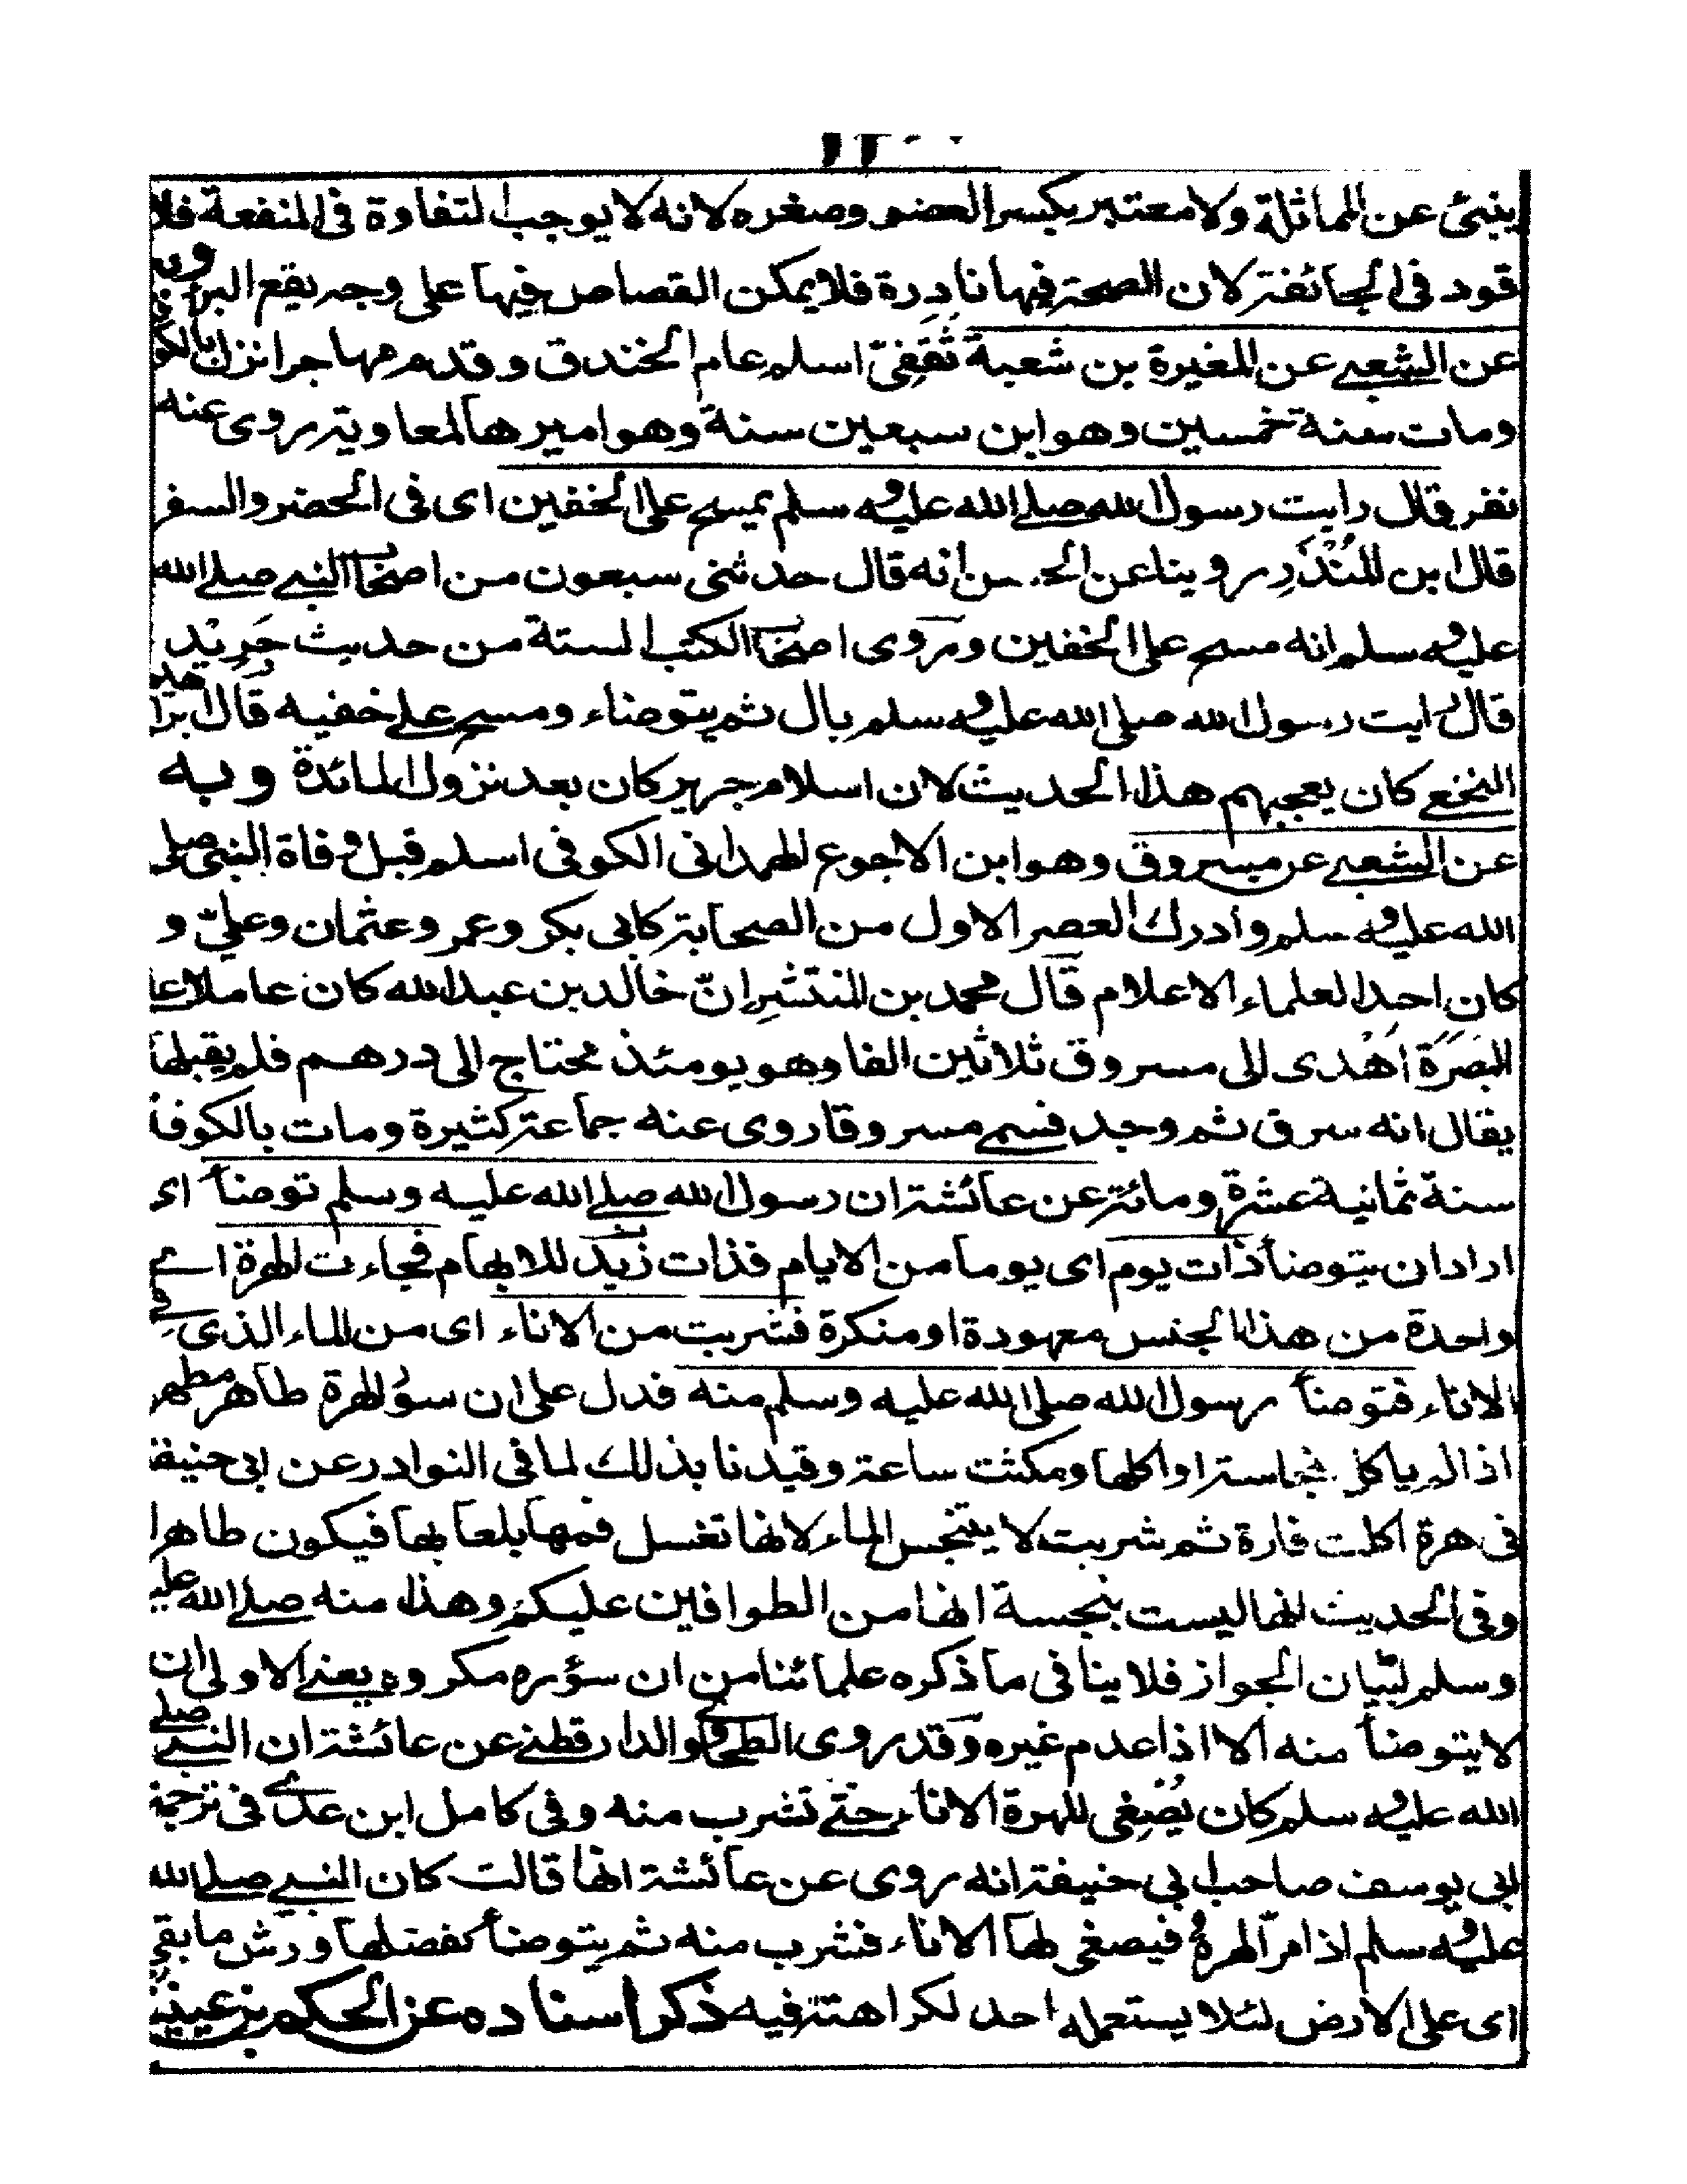 ينبئ عن المماثلة ولا معتبر بكسر العضو وصغره لانه لا يوجب التفاوة فى المنفعة فلا
قود فى الجائفة لان الصحة فيها نادرة فلا يمكن القصاص فيها على وجه يقع البرأ وبه
عن الشعبے عن المغيرة بن شعبة ثَقَفِىّ اسلم عام الخندق وقدم مهاجرا نزل بالكوفة
ومات سنة خمسين وهو ابن سبعين سنة وهو اميرها لمعاوية روى عنه
نفر قال رايت رسول الله صلے الله عليه وسلم يمسح على الخفين اى فى الحضر والسفر
قال ابن المُنْذِر روينا عن الحسن انه قال حدثنى سبعون من اصحاب النبے صلے الله
عليه وسلم انه مسح على الخفين وروى اصحاب الكتب الستة من حديث جَرِيْر
قال رايت رسول الله صلى الله عليه وسلم بال ثم يتوضاء ومسح علے خفيه قال ابراهيم
النخعے كان يعجبهم هذا الحديث لان اسلام جرير كان بعد نزول المائدة وبه
عن الشعبے عن مسروق وهو ابن الاجوع الهمدانى الكوفى اسلم قبل وفاة النبى صلى
الله عليه وسلم وادرك العصر الاول من الصحابة كابى بكر وعمر وعثمان وعلىّ و
كان احد العلماء الاعلام قال محمد بن المنتشِر انّ خالد بن عبد الله كان عاملا على
البَصَرَة اَهْدى الى مسروق ثلاثين الفا وهو يومئذ محتاج الى درهم فلم يقبلها
يقال انه سرق ثم وجد فسمے مسروقا روى عنه جماعة كثيرة ومات بالكوفة
سنة ثمانية عشرة ومائة عن عائشة ان رسول الله صلے الله عليه وسلم توضأ اى
اراد ان يتوضأ ذات يوم اى يوما من الايام فذات زيد للابهام فجاءت الهرة اے
واحدة من هذا الجنس معهودة او منكرة فشربت من الاناء اى من الماء الذى فے
الاناء فتوضأ رسول الله صلى الله عليه وسلم منه فدل على ان سؤر الهرة طاهر مطهر
اذا لم ياكل نجاسة او اكلها ومكثت ساعة وقيدنا بذلك لما فى النوادر عن ابى حنيفة
فى هرة اكلت فارة ثم شربت لا يتنجس الماء لانها تغسل فمها بلعابها فيكون طاهرا
وفى الحديث انها ليست بنجسة انها من الطوافين عليكم وهذا منه صلے الله عليه
وسلم لبيان الجواز فلا ينافى ما ذكره علمائنا من ان سؤره مكروه يعنے الاولى ان
لا يتوضأ منه الا اذا عدم غيره وقد روى الطحاوے والدارقطنے عن عائشة ان النبے صلے
الله عليه وسلم كان يُصْغِى للهرة الاناء حتے تشرب منه وفى كامل ابن عدے فى ترجمة
ابى يوسف صاحب ابى حنيفة انه روى عن عائشة انها قالت كان النبے صلے الله
عليه وسلم اذا مرّ الهرة فيصغى لها الاناء فشرب منه ثم يتوضأ بفضلها ورش ما بقى
اى على الارض لئلا يستعمله احد لكراهته فيه ذكر اسناده عن الحكم بن عيينة